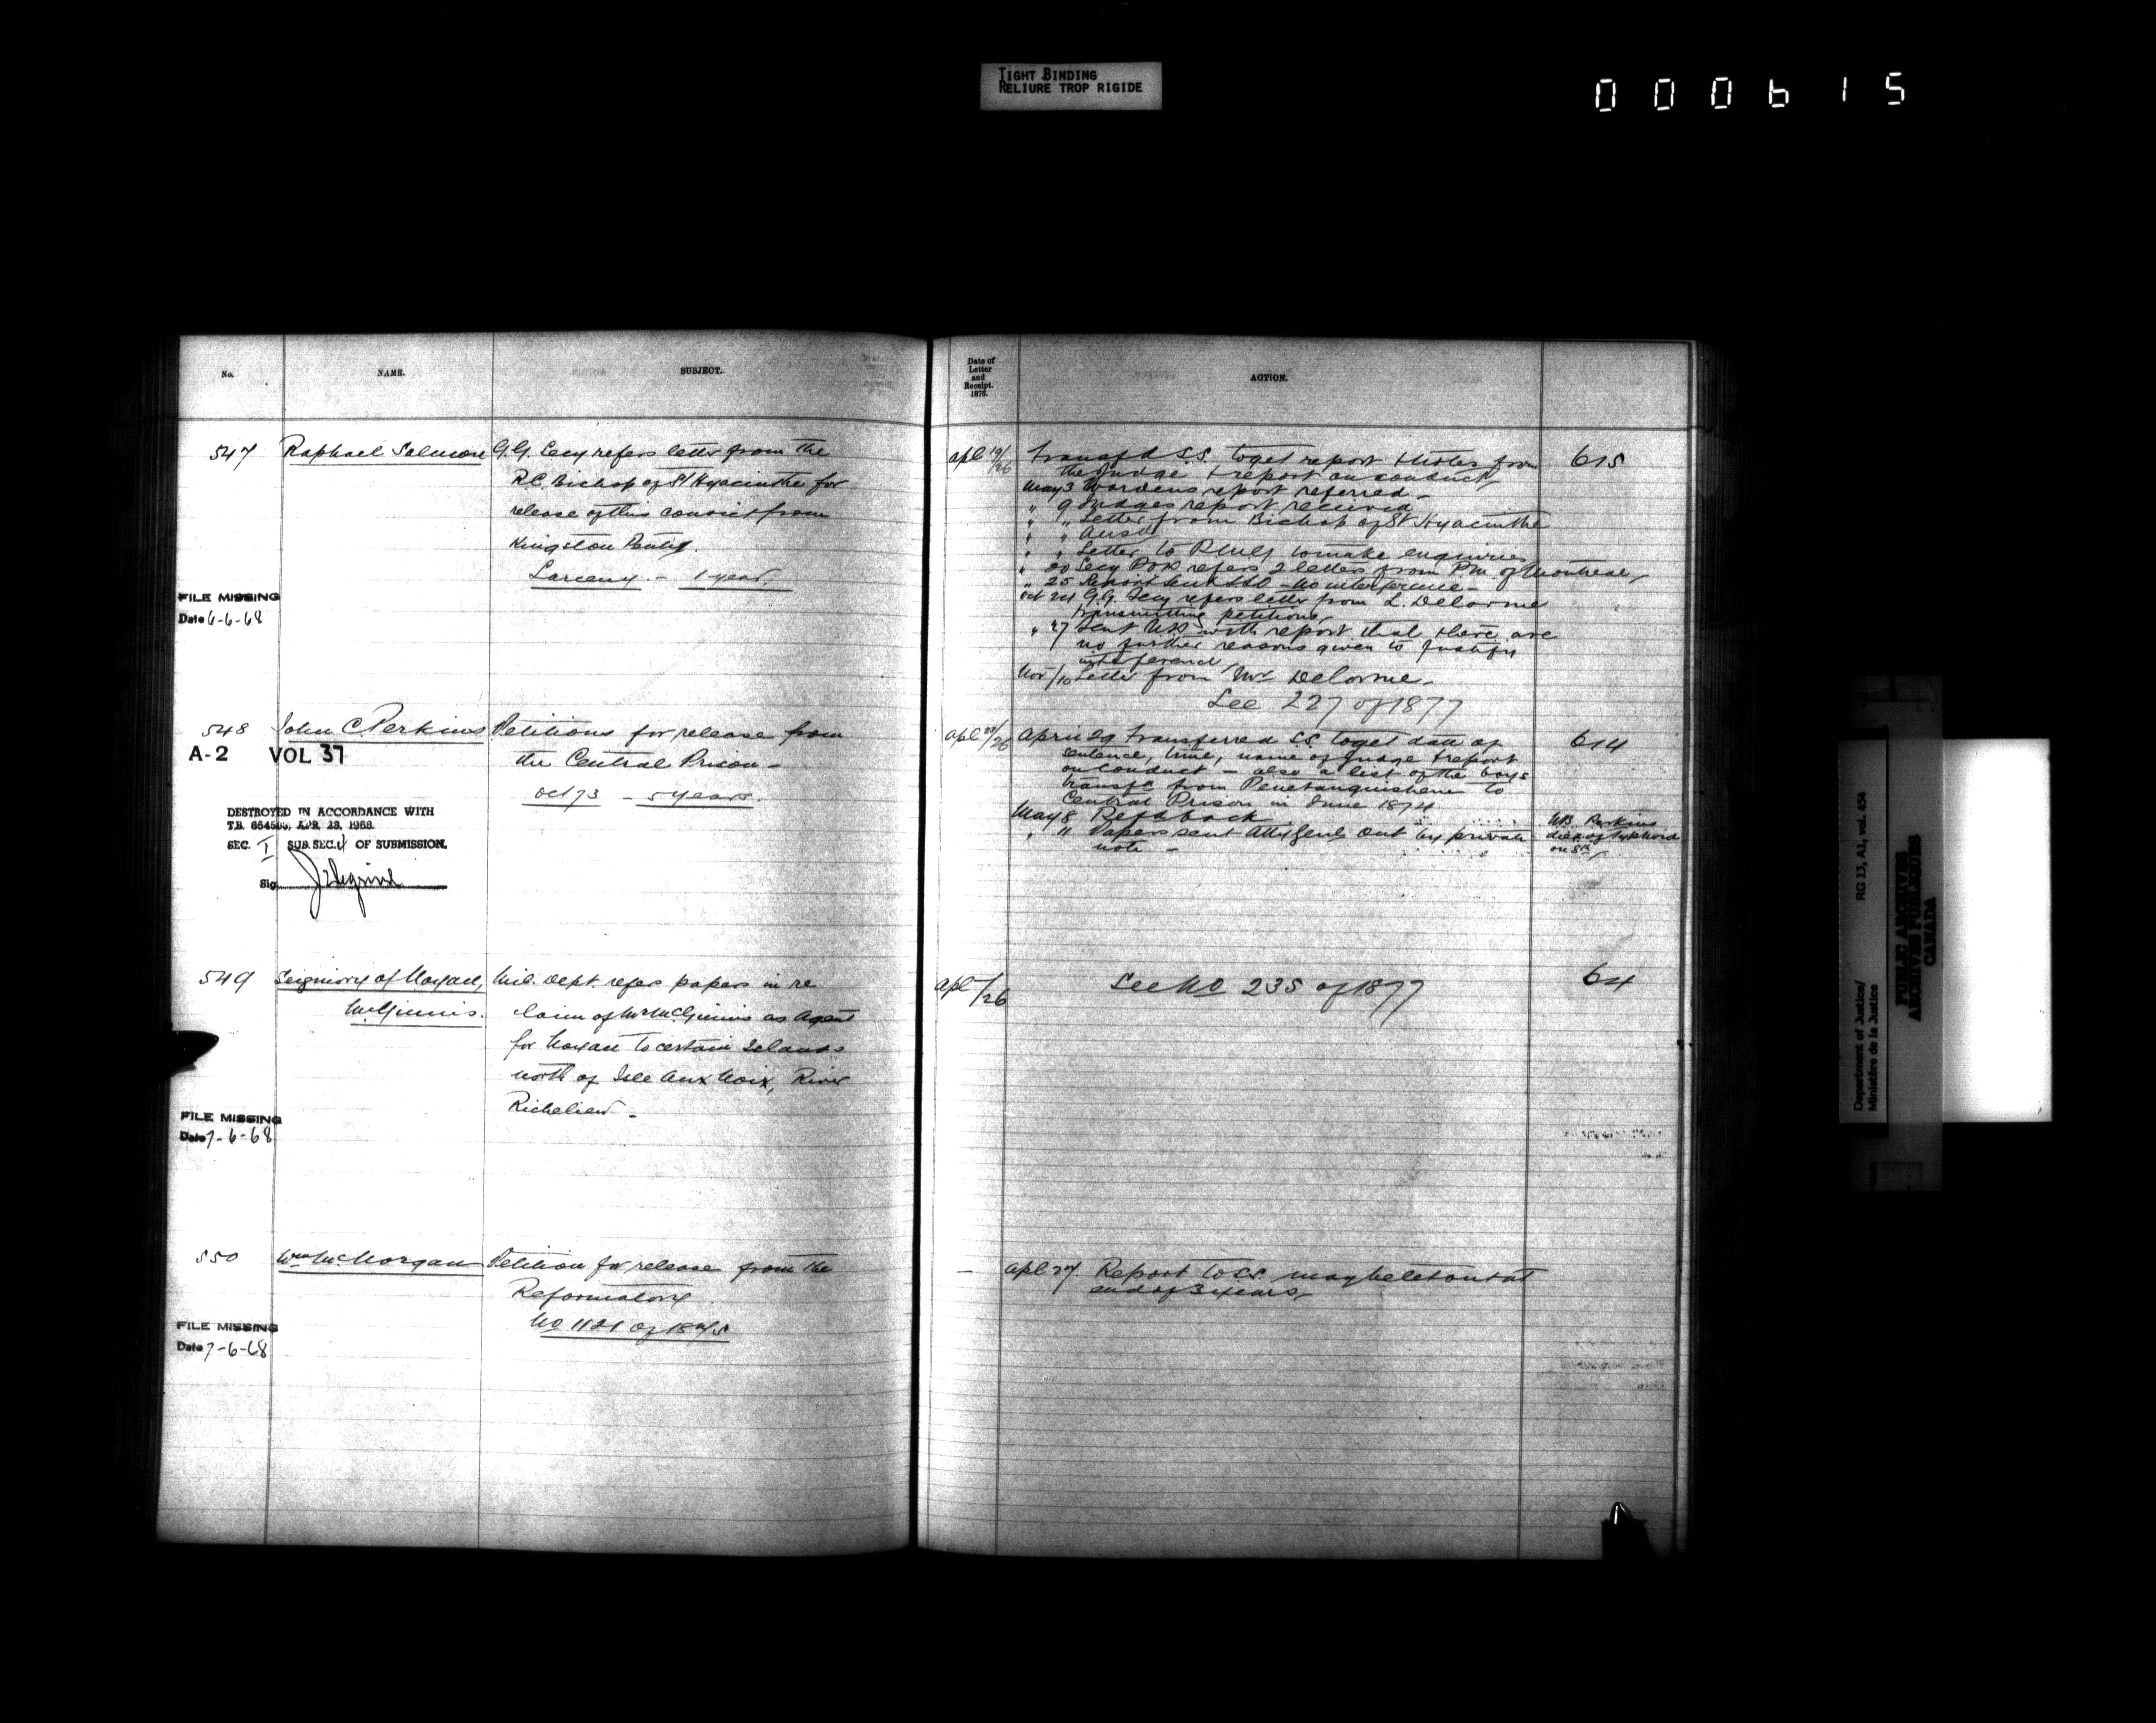 TIGHT BINDING
RELIURE TROP RIGIDE
000615
No.
NAME.
SUBJECT.
Date of
Letter
and
Receipt.
1876.
ACTION.
547
Raphael Salmon
G.G. Secy refers letter from the
R.C. Bishop of St Hyacinthe for
release of this convict from
Kingston Penity.
Larceny. - 1 year.
FILE MISSING
Date 6-6-68
apl 19/26
Transfd S.S. to get report & notes from
the Judge & report on conduct
May 3 Wardens report referred -
" 9 Judges report received
" " Letter from Bishop of St Hyacinthe
" " Ansd
" " Letter to to make enquiries
" 20 Secy refers 2 letters from P.M. of Montreal
" 25 Report sent - no interference -
Oct 24 G.G. Secy refers letter from L. Delorme
transmitting petitions,
" 27 Sent with report that there are
no further reasons given to justify
interference
Nov/10 Letter from Mr Delorme -
See 227 of 1877
615
548
John C. Perkins
Petitions for release from
the Central Prison -
Oct 73 - 5 years.
A-2 VOL 37
DESTROYED IN ACCORDANCE WITH
T.B. APR. 28, 1966.
SEC. I SUB. SEC. 4 OF SUBMISSION.
Sig
apl 25/26
April 29 Transferred S.S. to get date of
sentence, time, name of Judge & report
on conduct - also a list of the boys
transfd from Penetanguishene to
Central Prison in June 1874
May 8 Refd back
" 11 Papers sent Atty Genl Ont by private
note -
614
NB. Perkins
died of typhoid
on 8th
549
Seigniory of Noyan,
McGinnis.
Mil. Dept. refers papers in re
claim of Mr McGinnis as Agent
for Noyan to certain Islands
north of Isle Aux Noix, River
Richelieu -
FILE MISSING
Date 7-6-68
apl /26
See No 235 of 1877
64
550
Wm McMorgan
Petition for release from the
Reformatory.
No 1121 of 1875
FILE MISSING
Date 7-6-68
-
apl 27. Report to S.S. may be let out at
end of 3 years,
Department of Justice/
Ministère de la Justice
RG 13, A1, vol. 454
PUBLIC ARCHIVES
ARCHIVES PUBLIQUES
CANADA